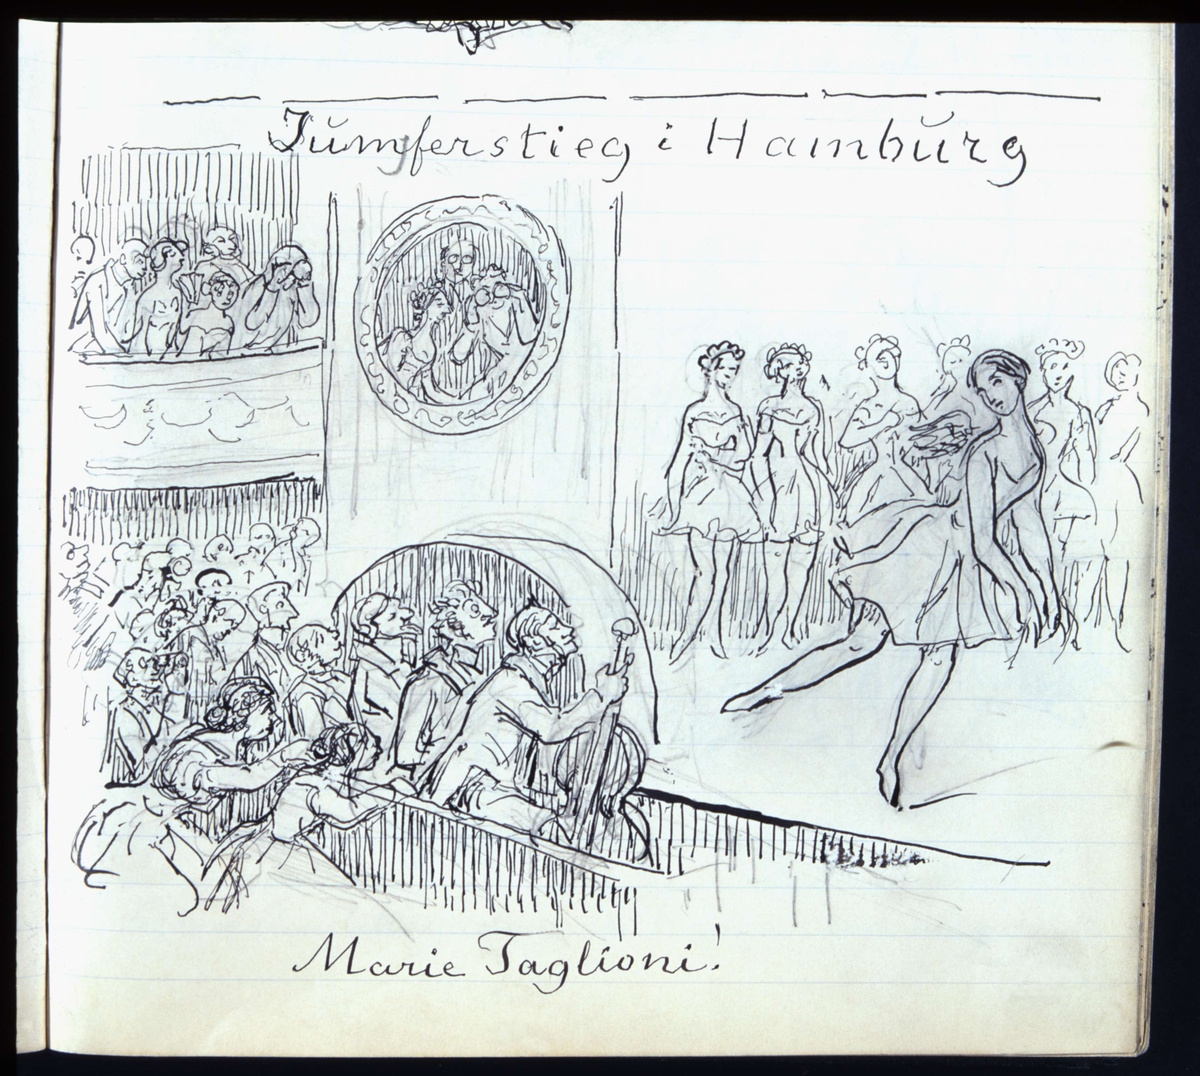 Jŭmferstieg i Hambŭrg
Marie Taglioni!